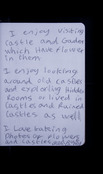 I enjoy visiting
Castle and Gaden
which Have flower
In them
I enjoy looking
around old castles
and exploring hidden
Rooms or lived in
Castles and Ruined
Castles as well
I Love having
Photos of flowers
and castles and